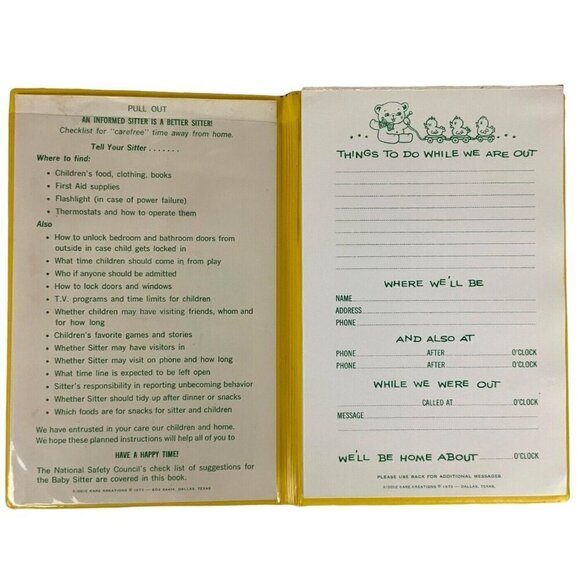 PULL OUT
AN INFORMED SITTER IS A BETTER SITTER!
Checklist for "carefree" time away from home.
Tell Your Sitter.......
Where to find:
• Children's food, clothing, books
• First Aid supplies
• Flashlight (in case of power failure)
• Thermostats and how to operate them
Also
• How to unlock bedroom and bathroom doors from
outside in case child gets locked in
• What time children should come in from play
• Who if anyone should be admitted
• How to lock doors and windows
• T.V. programs and time limits for children
• Whether children may have visiting friends, whom and
for how long
• Children's favorite games and stories
• Whether Sitter may have visitors in
• Whether Sitter may visit on phone and how long
• What time line is expected to be left open
• Sitter's responsibility in reporting unbecoming behavior
• Whether Sitter should tidy up after dinner or snacks
• Which foods are for snacks for sitter and children
We have entrusted in your care our children and home.
We hope these planned instructions will help all of you to
HAVE A HAPPY TIME!
The National Safety Council's check list of suggestions for
the Baby Sitter are covered in this book.
KIDDIE KARE KREATIONS © 1973 — DALLAS, TEXAS
THINGS TO DO WHILE WE ARE OUT
WHERE WE'LL BE
NAME
ADDRESS
PHONE
AND ALSO AT
PHONE AFTER O'CLOCK
PHONE AFTER O'CLOCK
WHILE WE WERE OUT
CALLED AT O'CLOCK
MESSAGE
WE'LL BE HOME ABOUT O'CLOCK
PLEASE USE BACK FOR ADDITIONAL MESSAGES
KIDDIE KARE KREATIONS © 1973 — DALLAS, TEXAS.